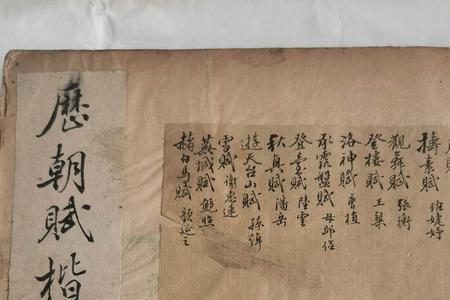 擣素賦 班婕妤
觀舞賦 張衡
登樓賦 王粲
洛神賦 曹植
承露盤賦 毋邱儉
登臺賦 陸雲
秋興賦 潘岳
遊天台山賦 孫綽
雪賦 謝惠連
蕪城賦 鮑照
赭白馬賦 顏延之
歷朝賦楷